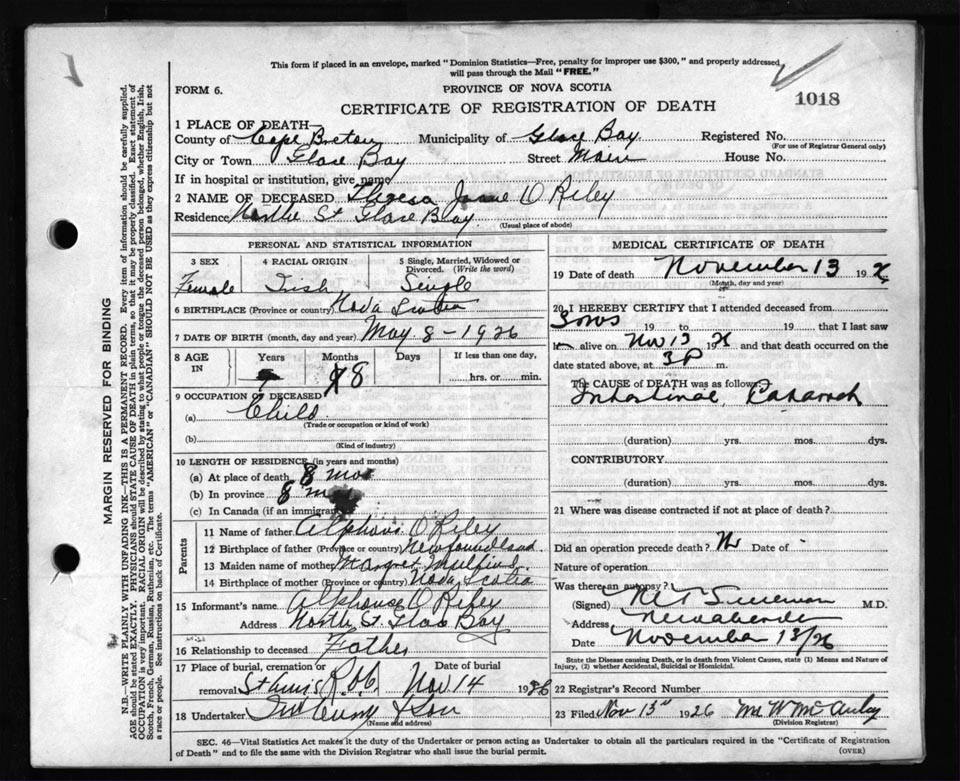 This form if placed in an envelope, marked "Dominion Statistics—Free, penalty for improper use $300," and properly addressed
will pass through the Mail "FREE."
FORM 6.
PROVINCE OF NOVA SCOTIA
CERTIFICATE OF REGISTRATION OF DEATH
1018
1 PLACE OF DEATH—
County of Cape Breton Municipality of Glace Bay Registered No.
(For use of Registrar General only)
City or Town Glace Bay Street Main House No.
If in hospital or institution, give name
2 NAME OF DECEASED Theresa O Riley
Residence St Glace Bay
(Usual place of abode)
PERSONAL AND STATISTICAL INFORMATION
3 SEX 4 RACIAL ORIGIN 5 Single, Married, Widowed or Divorced. (Write the word)
Female Irish Single
6 BIRTHPLACE (Province or country) Nova Scotia
7 DATE OF BIRTH (month, day and year) May 8-1926
8 AGE IN Years Months Days If less than one day,
8 hrs. or min.
9 OCCUPATION OF DECEASED
(a) Child
(Trade or occupation or kind of work)
(b)
(Kind of industry)
10 LENGTH OF RESIDENCE (in years and months)
(a) At place of death 8 mos
(b) In province 8
(c) In Canada (if an immigrant)
Parents
11 Name of father O Riley
12 Birthplace of father (Province or country) Newfoundland
13 Maiden name of mother Margret
14 Birthplace of mother (Province or country) Nova Scotia
15 Informant's name Alphonse O Riley
Address North St. Bay
16 Relationship to deceased Father
17 Place of burial, cremation or removal Date of burial
Nov 14 1926
18 Undertaker & Son
(Name and address)
MEDICAL CERTIFICATE OF DEATH
19 Date of death November 13 192
(Month, day and year)
20 I HEREBY CERTIFY that I attended deceased from
19 to 19 that I last saw
alive on Nov 13 19 and that death occurred on the
date stated above, at 3 P m.
The CAUSE of DEATH was as follows:
Intestinal
(duration) yrs. mos. dys.
CONTRIBUTORY
(duration) yrs. mos. dys.
21 Where was disease contracted if not at place of death?
Did an operation precede death? No Date of
Nature of operation
Was there an autopsy?
(Signed) M.D.
Address
Date November 13/26
State the Disease causing Death, or in death from Violent Causes, state (1) Means and Nature of
Injury, (2) whether Accidental, Suicidal or Homicidal.
22 Registrar's Record Number
23 Filed Nov 13th 1926
(Division Registrar)
SEC. 46—Vital Statistics Act makes it the duty of the Undertaker or person acting as Undertaker to obtain all the particulars required in the "Certificate of Registration
of Death" and to file the same with the Division Registrar who shall issue the burial permit.
(OVER)
MARGIN RESERVED FOR BINDING
N.B.—WRITE PLAINLY WITH UNFADING INK—THIS IS A PERMANENT RECORD. Every item of information should be carefully supplied.
AGE should be stated EXACTLY. PHYSICIANS should STATE CAUSE OF DEATH in plain terms, so that it may be properly classified. Exact statement of
OCCUPATION is very important. RACIAL ORIGIN will be described by stating to what people or tongue the deceased person belonged, whether English, Irish,
Scotch, French, German, Russian, Ruthenian, etc. The terms "AMERICAN" or "CANADIAN" SHOULD NOT BE USED as they express citizenship but not
a race or people. See instructions on back of Certificate.